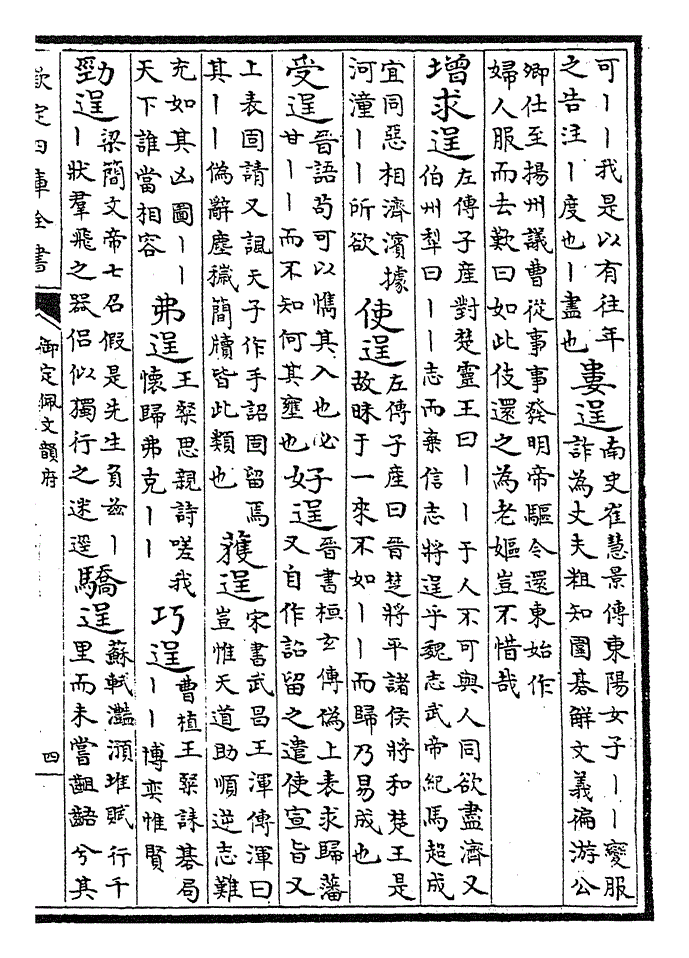 可丨丨我是以有往年
之告注丨度也丨盡也
婁逞
南史崔慧景傳東陽女子丨丨變服
詐為丈夫粗知圍碁解文義徧游公
卿仕至揚州議曹從事事發明帝驅令還東始作
婦人服而去歎曰如此伎還之為老嫗豈不惜哉
增求逞
左傳子產對楚靈王曰丨丨于人不可與人同欲盡濟又
伯州犁曰丨丨志而棄信志將逞乎魏志武帝紀馬超成
宜同惡相濟濱據
河潼丨丨所欲
使逞
左傳子產曰晉楚將平諸侯將和楚王是
故昧于一來不如丨丨而歸乃易成也
受逞
晉語苟可以其入也必
甘丨丨而不知何其壅也
好逞
晉書桓玄傳偽上表求歸藩
又自作詔留之遣使宣旨又
上表固請又諷天子作手詔固留焉
其丨丨偽辭塵穢簡牘皆此類也
獲逞
宋書武昌王渾傳渾曰
豈惟天道助順逆志難
充如其凶圖丨丨
天下誰當相容
弗逞
王粲思親詩嗟我
懷歸弗克丨丨
巧逞
曹植王粲誄碁局
丨丨博奕惟賢
勁逞
梁簡文帝七召假是先生負茲丨
丨狀羣飛之器侶似獨行之迷遥
驕逞
蘇軾灩澦堆賦行千
里而未嘗齟齬兮其
欽定四庫全書
御定佩文韻府
四